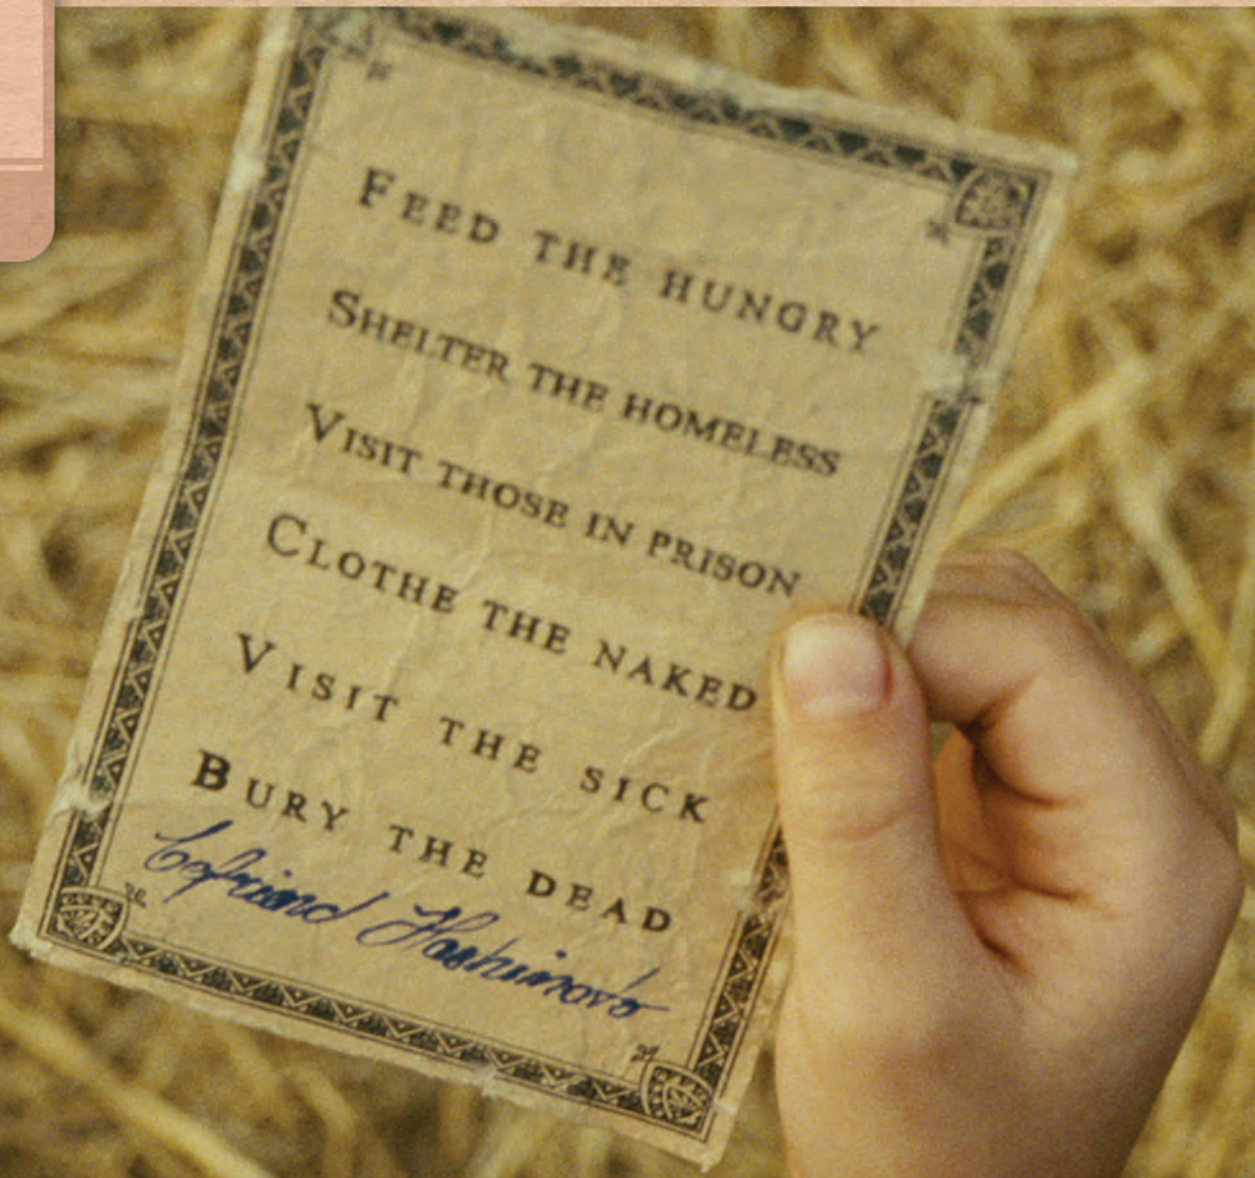 FEED THE HUNGRY
SHELTER THE HOMELESS
VISIT THOSE IN PRISON
CLOTHE THE NAKED
VISIT THE SICK
BURY THE DEAD
Befriend Hashimoto